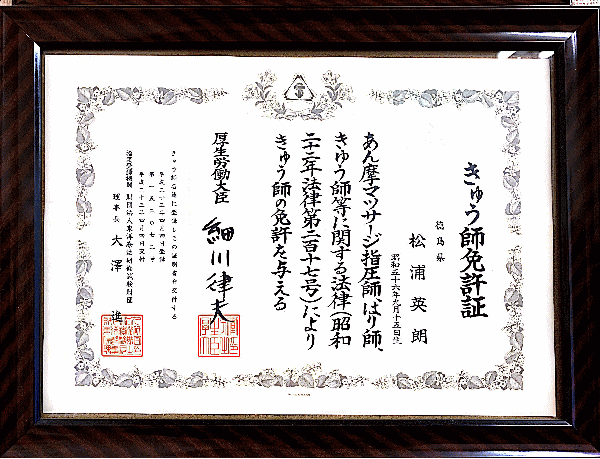 きゅう師免許証
徳島県
松浦英朗
昭和三十六年九月十五日生
あん摩マツサージ指圧師、はり師、
きゆう師等に関する法律（昭和
二十二年法律第二百十七号）により
きゅう師の免許を与える
厚生労働大臣
細川律夫
きゅう師名簿に登録しこの証明書を交付する
理事長 大澤 進